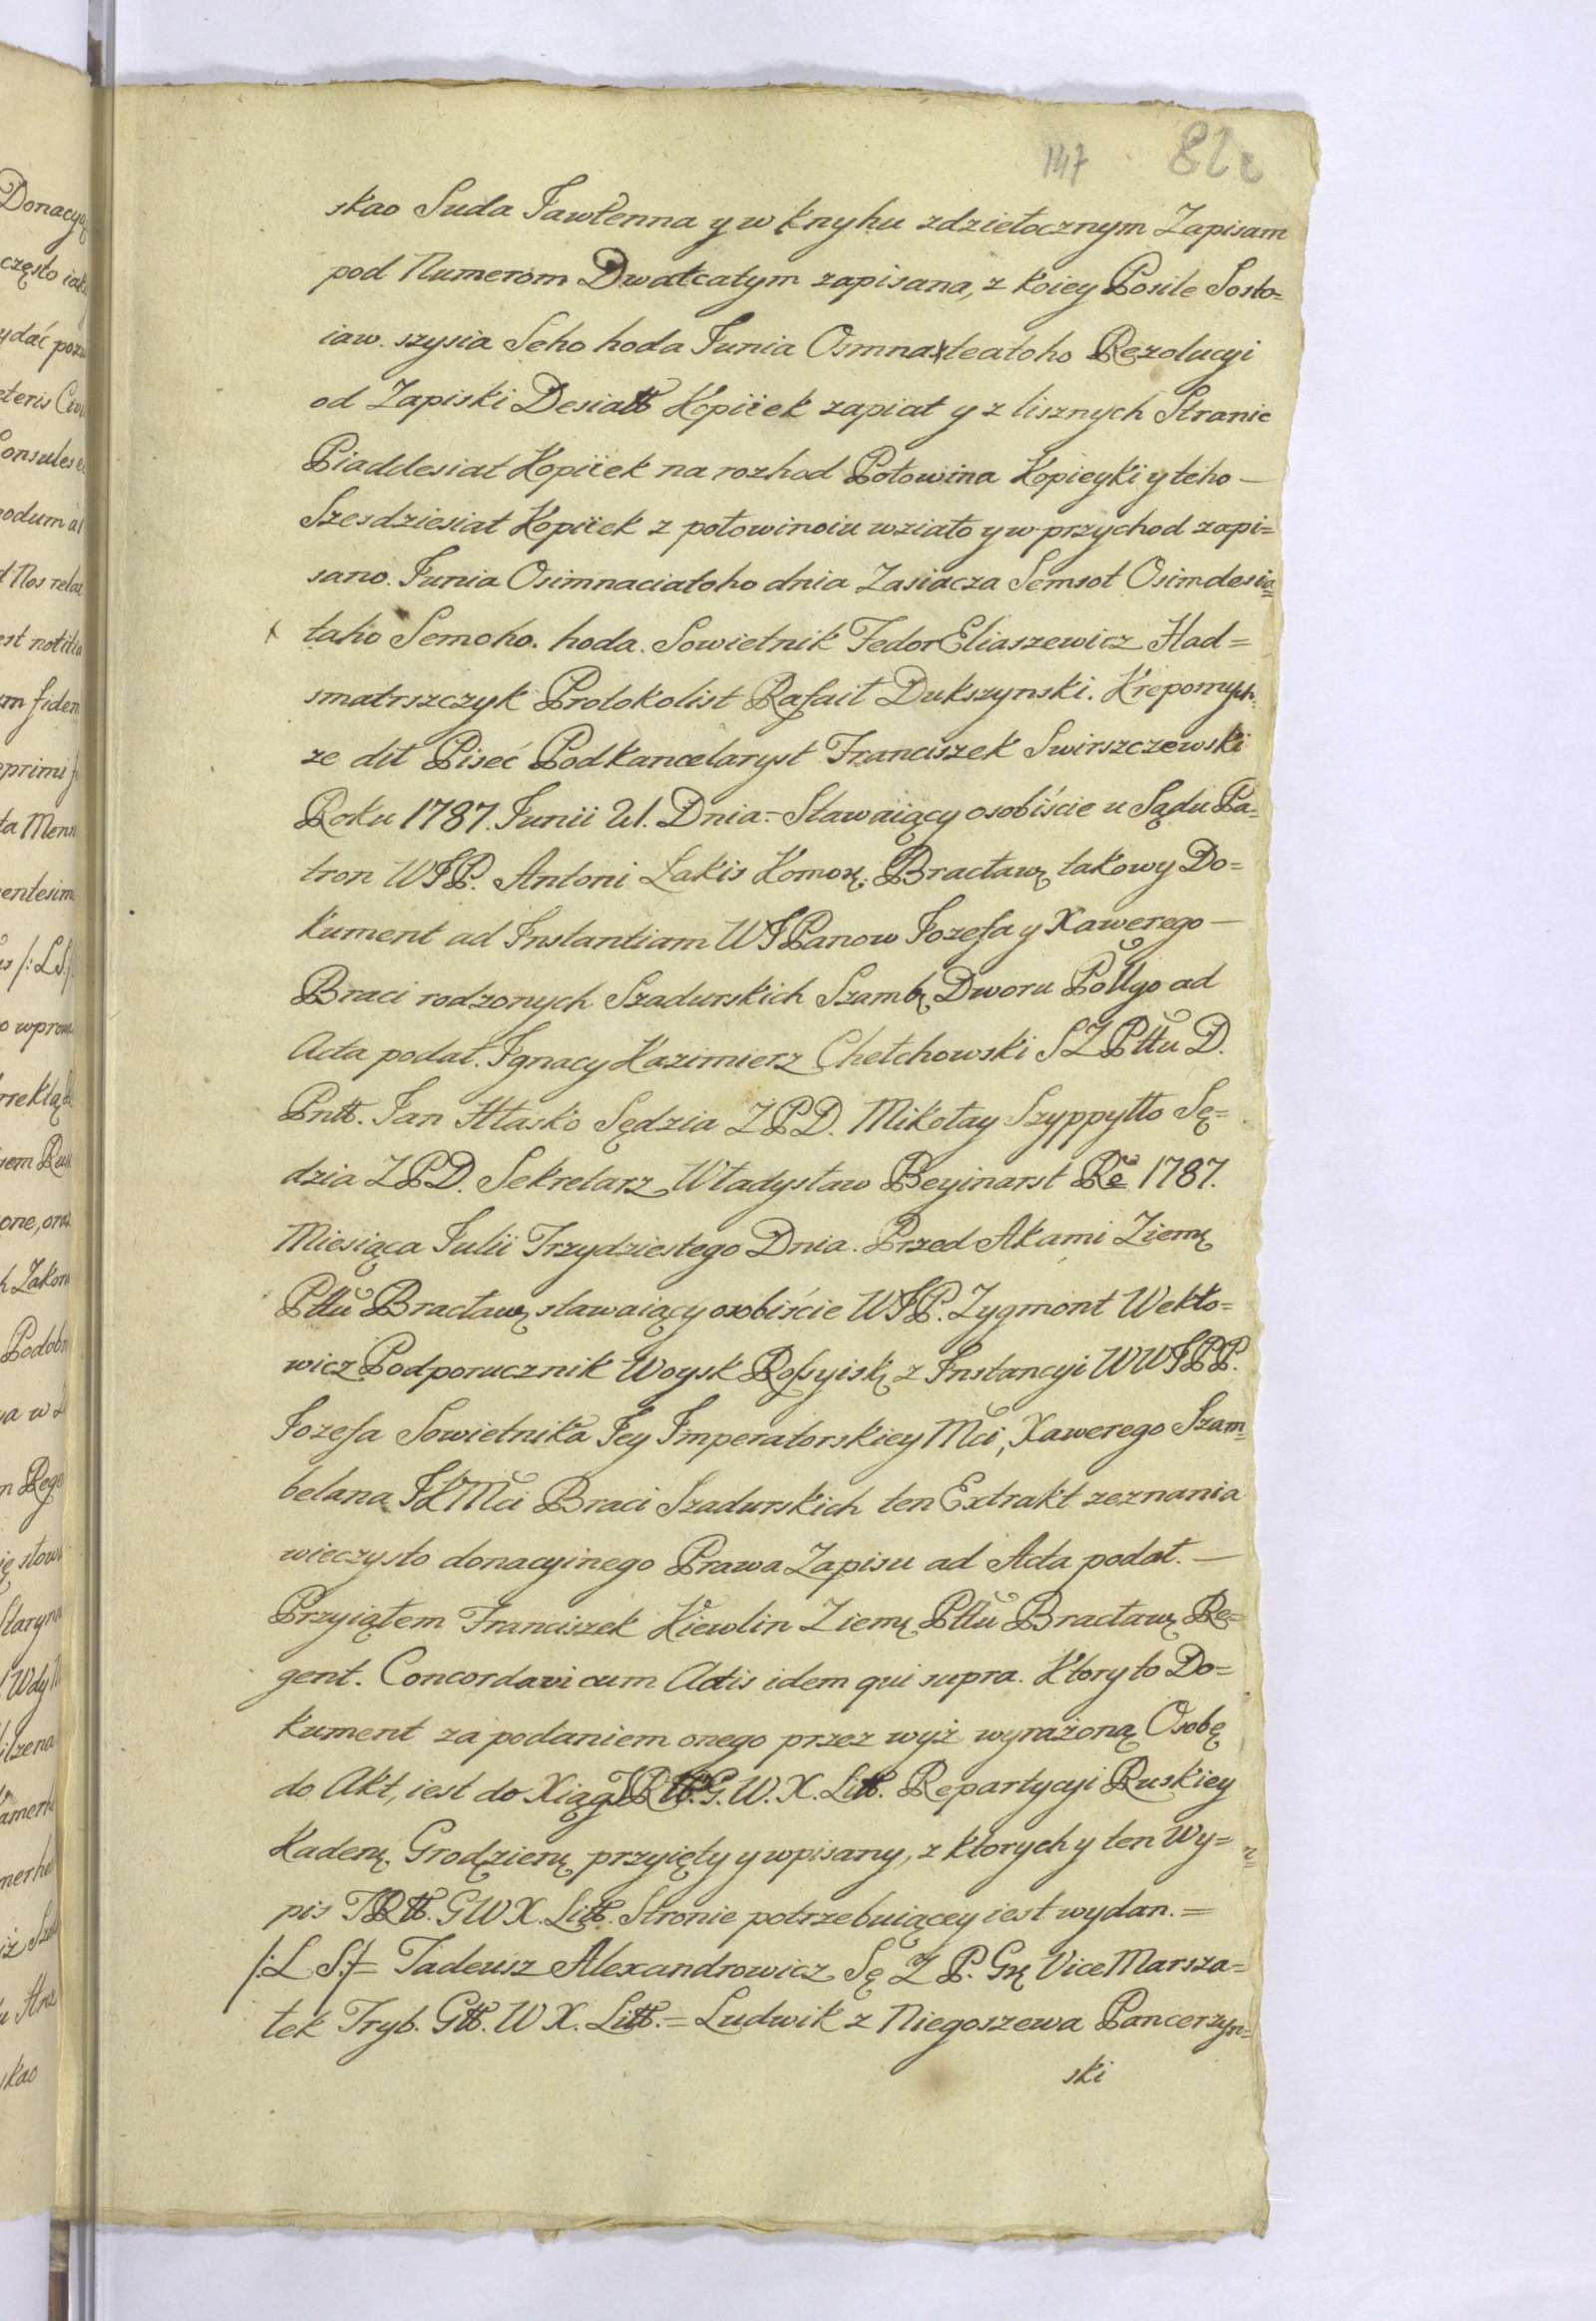 147 82
skao Suda Jawłenna y w knyhu zdziełocznym Zapisam
pod Numerom Dwatcatym zapisana, z koiey Posile Sosto=
iaw. szysia Seho hoda Junia Osmnateatoho Rezolucyi
od Zapiski Desiatt Kopiiek zapiat y z lisznych Stranic
Piaddesiat Kopiiek na rozhod Połowina Kopieyki y teho —
Szesdziesiat Kopiiek z połowinoiu wziato y w przychod zapi=
sano. Junia Osimnaciatoho dnia Zasiacza Semsot Osimdesia=
taho Semoho. hoda. Sowietnik Fedor Eliaszewicz Had=
smatrszczyk Protokolist Rafaił Dukszynski. Krepomych
ze dit Piseć Podkancelaryst Franciszek Swirszczewski
Roku 1787. Junii 21. Dnia = Stawaiący osobiście u Sądu Pa=
tron WJP. Antoni Łakis Komor. Bracław. takowy Do=
kument ad Instantiam WJPanow Jozefa y Xawerego —
Braci rodzonych Szadurskich Szamb. Dworu Pollgo ad
Acta podał. Ignacy Kazimierz Chełchowski SZPttu D.
Pntt. Jan Hłasko Sędzia ZPD. Mikołay Szyppyłło Sę=
dzia ZPD. Sekretarz Władysław Beyinarst Re 1787.
Miesiąca Julii Trzydziestego Dnia. Przed Aktami Ziem.
Pttu Bracław. stawaiący osobiście WJP. Zygmont Wekło=
wicz Podporucznik Woysk Roſsyisk. z Instancyi WWJPP.
Jozefa Sowietnika Jey Imperatorskiey Mci, Xawerego Szam=
belana JKMci Braci Szadurskich ten Extrakt zeznania
wieczysto donacyinego Prawa Zapisu ad Acta podał. —
Przyiąłem Franciszek Kiewlin Ziem. Pttu Bracław. Re=
gent. Concordavi cum Actis idem qui supra. Ktory to Do=
kument za podaniem onego przez wyż wyrażoną Osobę
do Akt, iest do Xiąg G. W. X. Litt. Repartycyi Ruskiey
Kaden. Grodzien. przyięty y wpisany, z ktorych y ten Wy=
pis GWX. Litt. Stronie potrzebuiącey iest wydan. =
/:L S:/ = Tadeusz Alexandrowicz Sę Z P. Gr. Vice Marsza=
łek Tryb. Gtt. W X. Litt. = Ludwik z Niegoszewa Pancerzyn=
ski